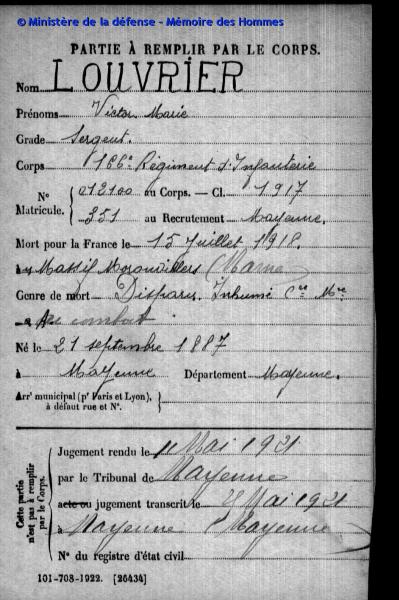 © Ministère de la défense - Mémoire des Hommes
PARTIE À REMPLIR PAR LE CORPS.
Nom LOUVRIER
Prénoms Victor Marie
Grade Sergent.
Corps 166e Régiment d'Infanterie
N° Matricule. { 012100 au Corps. — Cl. 1917
351 au Recrutement Mayenne.
Mort pour la France le 15 Juillet 1918.
à Massif Moronvilliers (Marne
Genre de mort Disparu. Inhumé
combat
Né le 21 septembre 1887
à Mayenne Département Mayenne.
Arrt municipal (pr Paris et Lyon), à défaut rue et N°. }
Cette partie n'est pas à remplir par le Corps.
Jugement rendu le 11 Mai 1921
par le Tribunal de Mayenne
acte ou jugement transcrit le Mai 1921
à Mayenne Mayenne
N° du registre d'état civil
101-708-1922. [26434]